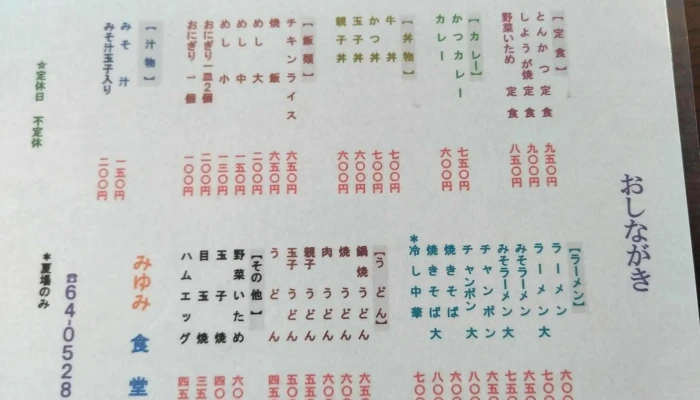 おしながき
【定食】
とんかつ定食 九五〇円
しょうが焼定食 九〇〇円
野菜いため定食 八五〇円
【カレー】
かつカレー 七五〇円
カレー 六〇〇円
【丼物】
牛丼 七〇〇円
かつ丼 七〇〇円
玉子丼 六〇〇円
親子丼 六〇〇円
【飯類】
チキンライス 六五〇円
焼飯 六五〇円
めし大 二〇〇円
めし中 一五〇円
めし小 一三〇円
おにぎり一皿2個 二〇〇円
おにぎり一個 一〇〇円
【汁物】
みそ汁 一五〇円
みそ汁玉子入り 二〇〇円
☆定休日 不定休
【ラーメン】
ラーメン 六〇
ラーメン大 七〇
みそラーメン 六五
みそラーメン大 七五
チャンポン 六五
チャンポン大 八〇
焼きそば 六〇
焼きそば大 八〇
*冷し中華 七〇
【うどん】
鍋焼うどん 六五
焼うどん 六〇
肉うどん 六〇
親子うどん 五五
玉子うどん 五〇
うどん 四五
【その他】
野菜いため 六〇
玉子焼 四〇
目玉焼 三五
ハムエッグ 四五
みゆみ食堂
☎64-0528
*夏場のみ